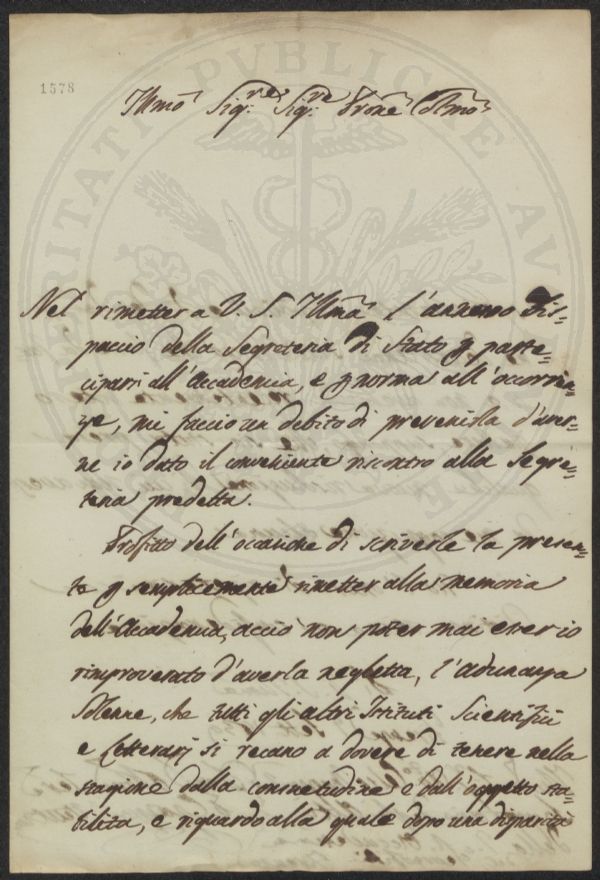 1578
Illmo Sigre Sigre Prone Stmo
Nel rimetter a V. S. Illma l'annesso dis-
paccio della Segreteria di Stato p parte-
ciparsi all'Accademia, e p norma all'occorren-
ze, mi faccio un debito di prevenirla d'aver-
ne io dato il conveniente riscontro alla Segre-
teria predetta.
Profitto dell'occasione di scriverle la presen-
te p semplicemente rimetter alla memoria
dell'Accademia, acciò non poter mai esser io
rimproverato d'averla negletta, l'adunanza
solenne, che tutti gli altri Istituti Scientifici
e Letterarj si recano a dovere di tenere nella
stagione dalla consuetudine e dall'oggetto sta-
bilita, e riguardo alla quale dopo una disparità